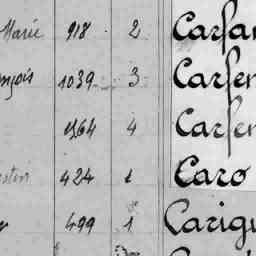 Marie 918 2 Carfan
nçois 1039 3 Carfen
1364 4 Carfen
estin 424 1 Caro
499 1 Carigu